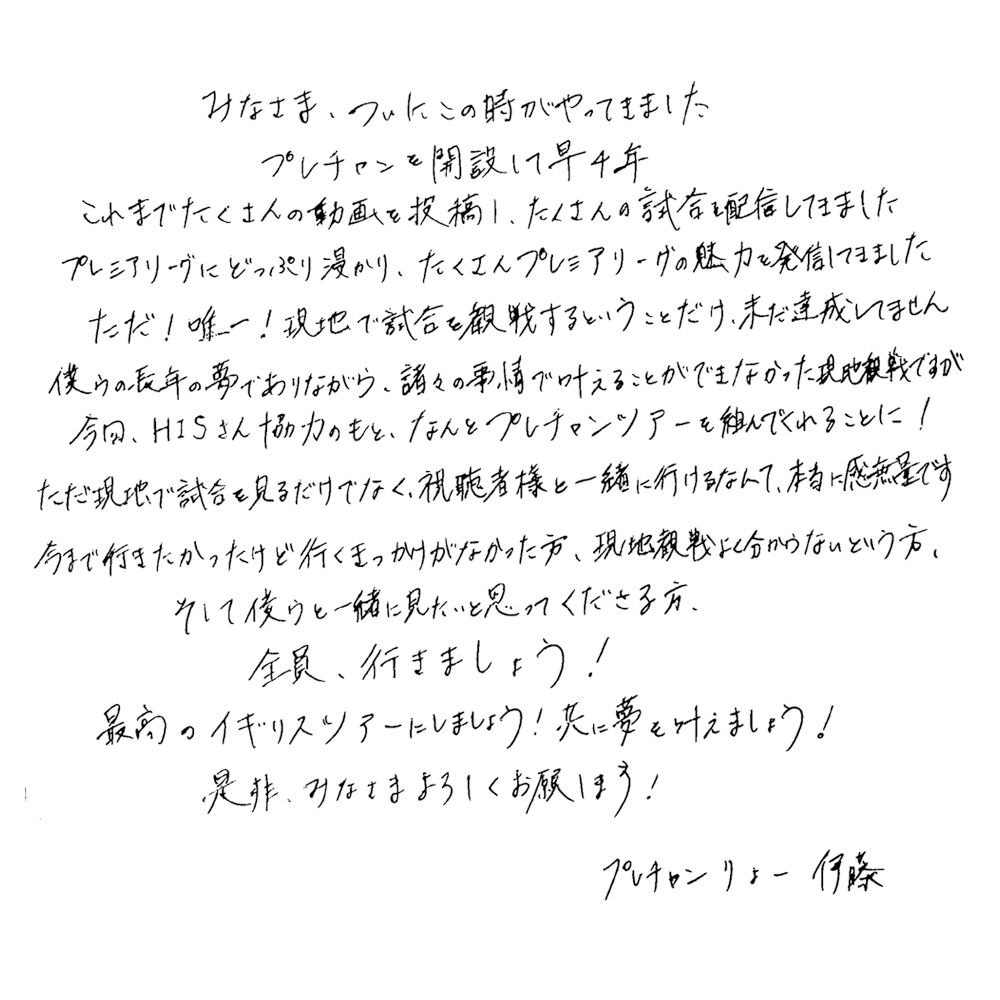 みなさま、ついにこの時がやってきました
プレチャンを開設して早4年
これまでたくさんの動画を投稿し、たくさんの試合を配信してきました
プレミアリーグにどっぷり浸かり、たくさんプレミアリーグの魅力を発信してきました
ただ！唯一！現地で試合を観戦するということだけ、未だ達成してません
僕らの長年の夢でありながら、諸々の事情で叶えることができなかった現地観戦ですが
今回、HISさん協力のもと、なんとプレチャンツアーを組んでくれることに！
ただ現地で試合を見るだけでなく、視聴者様と一緒に行けるなんて、本当に感無量です
今まで行きたかったけど行くきっかけがなかった方、現地観戦よく分からないという方、
そして僕らと一緒に見たいと思ってくださる方、
全員、行きましょう！
最高のイギリスツアーにしましょう！共に夢を叶えましょう！
是非、みなさまよろしくお願します！
プレチャン リョー 伊藤